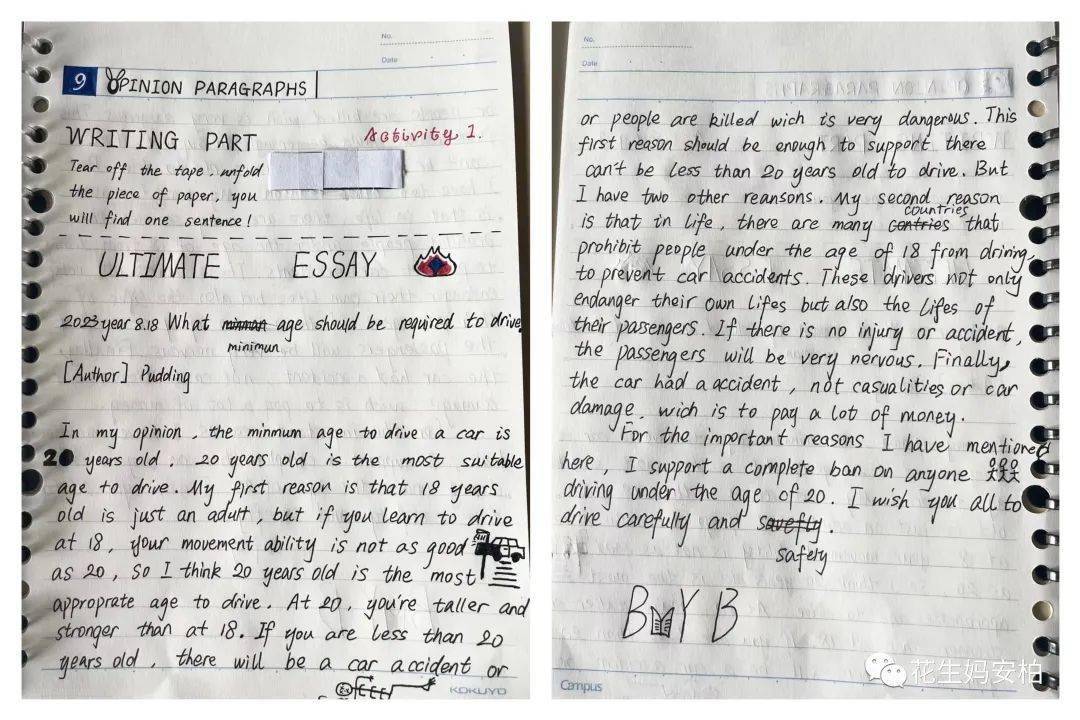 No.
Date
9 OPINION PARAGRAPHS
WRITING PART Activity 1.
Tear off the tape, unfold
the piece of paper, you
will find one sentence!
ULTIMATE ESSAY
2023year 8.18 What age should be required to drive
minimun
[Author] Pudding
In my opinion, the minmum age to drive a car is
20 years old. 20 years old is the most suitable
age to drive. My first reason is that 18 years
old is just an adult, but if you learn to drive
at 18, your movement ability is not as good
as 20, so I think 20 years old is the most
approprate age to drive. At 20, you're taller and
stronger than at 18. If you are less than 20
years old, there will be a car accident or
KOKUYO
No.
Date
or people are killed wich is very dangerous. This
first reason should be enough to support there
can't be less than 20 years old to drive. But
I have two other reansons. My second reason
countries
is that in life, there are many contries that
prohibit people under the age of 18 from driving,
to prevent car accidents. These drivers not only
endanger their own lifes but also the lifes of
their pasengers. If there is no injury or accident,
the passengers will be very nervous. Finally,
the car had a accident, not casualities or car
damage, wich is to pag a lot of money.
For the important reasons I have mentioned
here, I support a complete ban on anyone
driving under the age of 20. I wish you all to
drive carefully and savefly.
safety
BYB
Campus
花生妈安柏